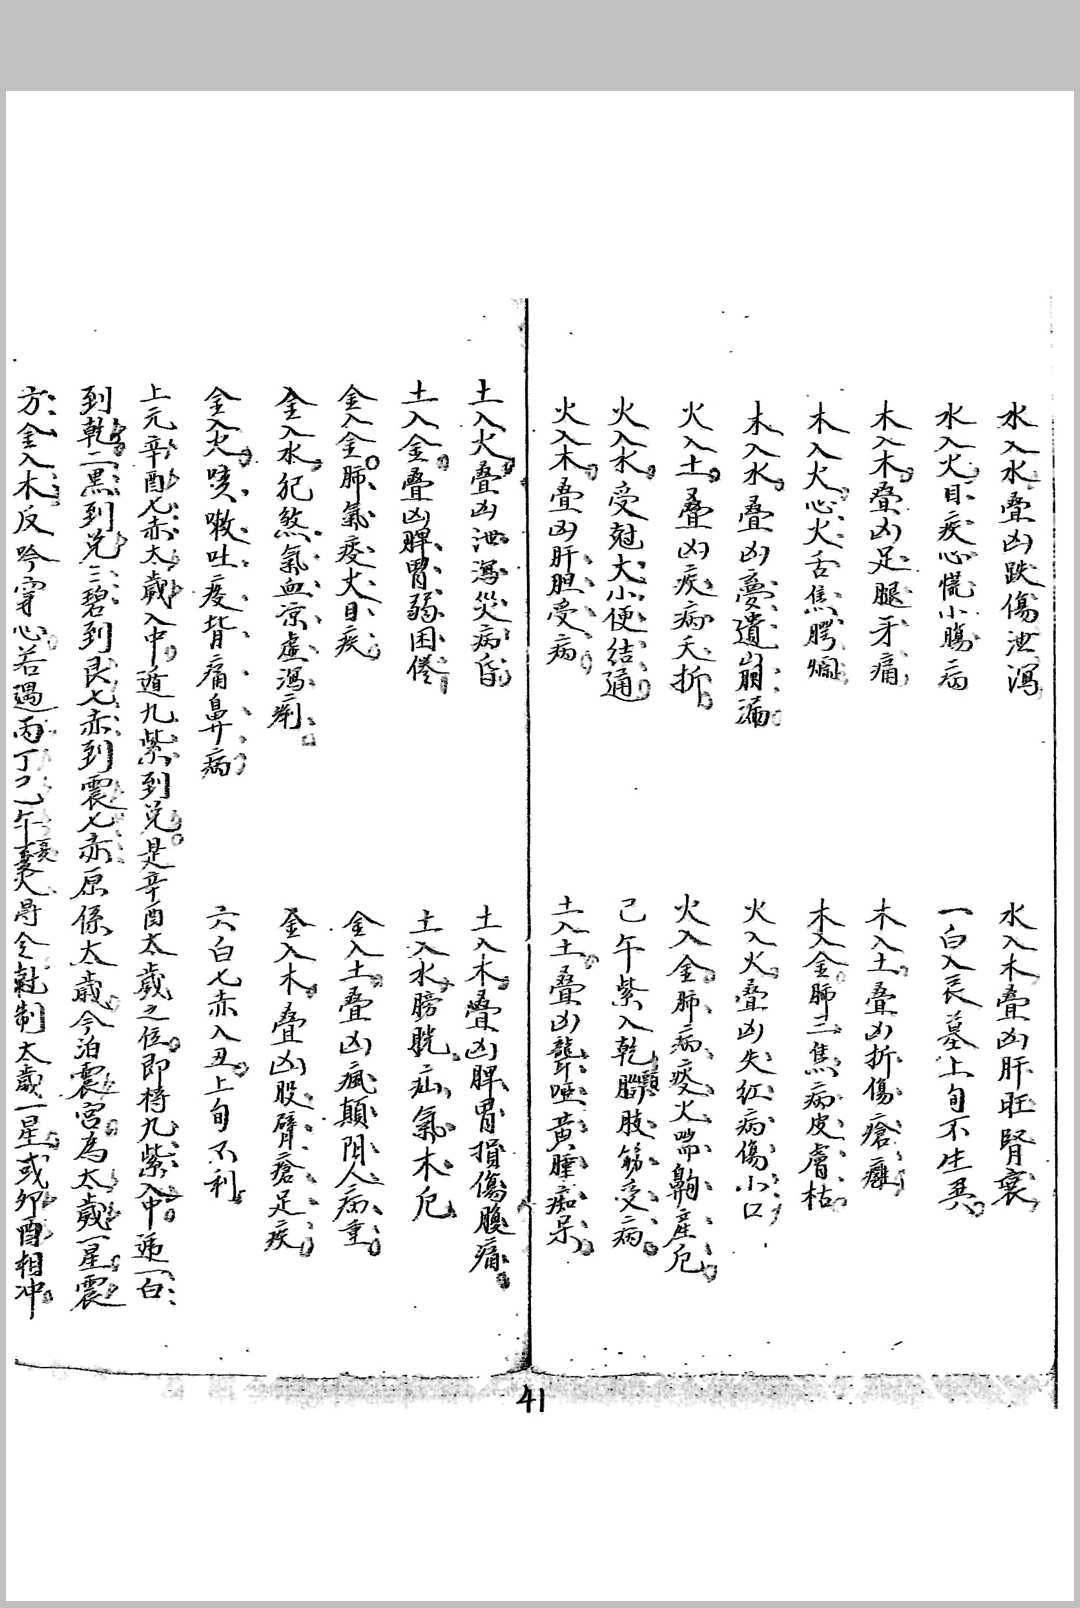 水入水叠凶跌傷泄瀉
水入木叠凶肝旺腎衰
水入火目疾心慌小腸病
一白入辰墓上旬不生異
木入木叠凶足腿牙痛
木入土叠凶折傷瘡癰
木入火心火舌焦腭爛
木入金肺三焦病皮膚枯
木入水叠凶憂遺崩漏
火入火叠凶失红病傷小口
火入土叠凶疾病夭折
火入金肺病痰火喘齁產厄
火入水受尅大小便结通
己午紫入乾腦頸肢筋受病
火入木叠凶肝胆受病
土入土叠凶聾啞黄腫痴呆
土入火叠凶泄瀉災病昏
土入木叠凶脾胃損傷腹痛
土入金叠凶脾胃弱困倦
土入水膀胱疝氣木厄
金入金肺氣痰火目疾
金入土叠凶瘋顛阴人病重
金入水犯煞氣血凉虚瀉痢
金入木叠凶股臂瘡足疾
金入火咳嗽吐痰背痛鼻病
六白七赤入丑上旬不利
上元辛酉七赤太歲入中遁九紫到兑是辛酉太歲之位即将九紫入中遁一白
到乾二黑到兑三碧到艮七赤到震七赤原係太歲今泊震宫為太歲一星震
方金入木反吟穿心若遇丙丁己午 火 令尅制太歲一星或夘酉相冲